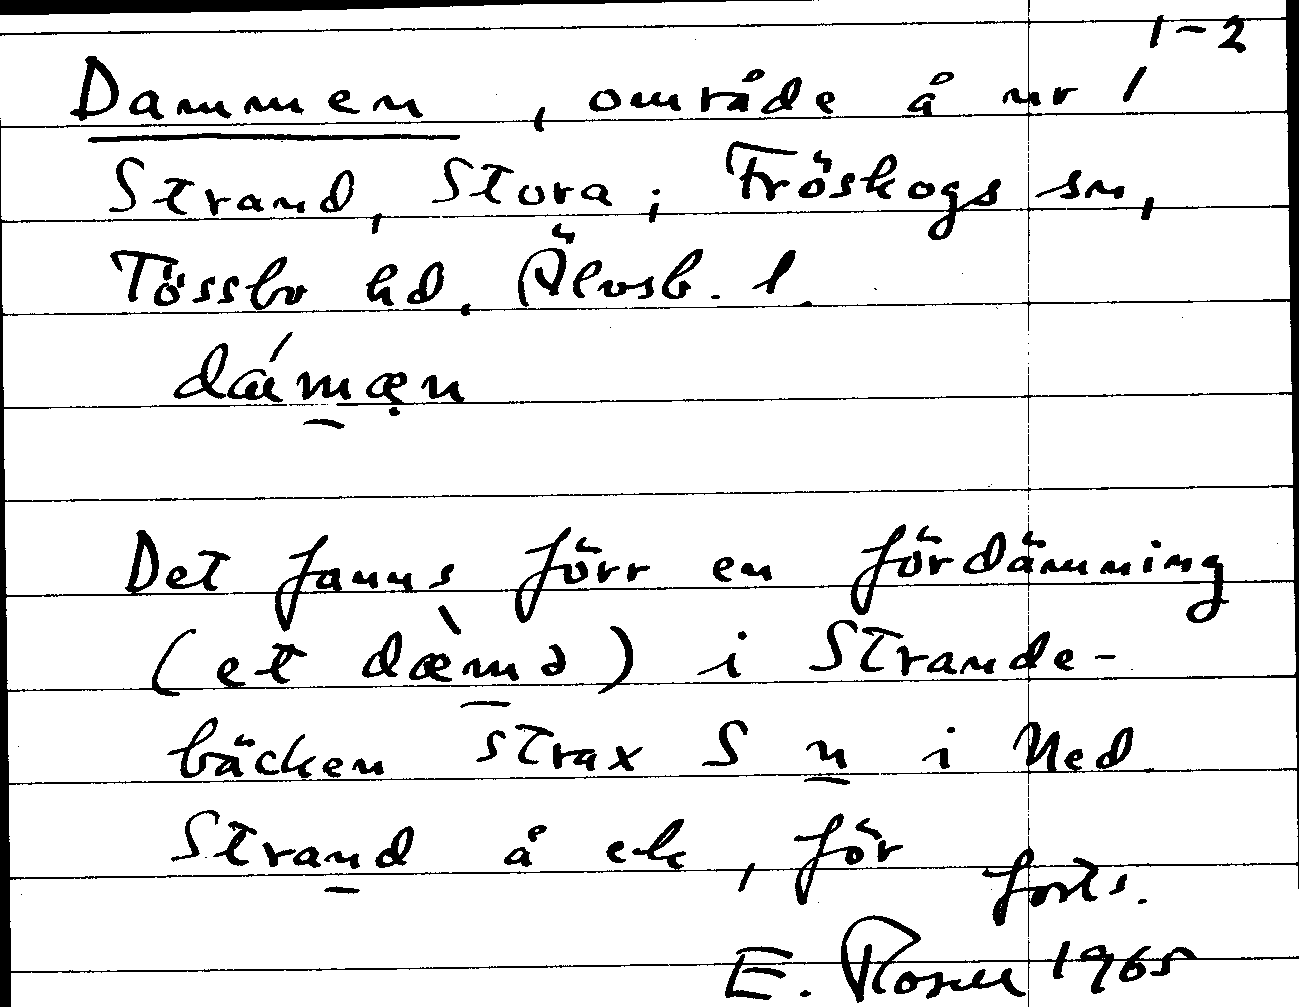 1-2
Dammen, område å nr 1
Strand, Stora; Fröskogs sn,
Tössbo hd. Älvsb. l.
Det fanns förr en fördämning
(et dæ̀mə) i Strande-
bäcken strax S n i Ned
Strand å ek, för
forts.
E. Rosell 1965